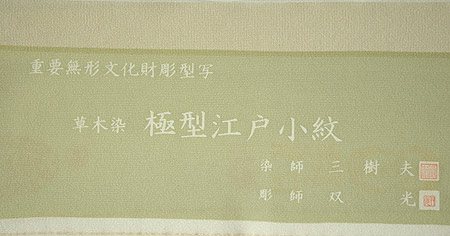 重要無形文化財彫型写
草木染 極型江戸小紋
染師 三樹夫
彫師 双光